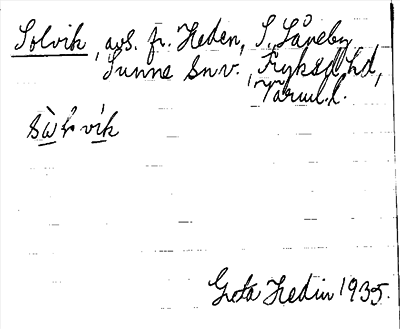 Solvik, avs. fr. Heden, S. Låneby
Sunne snv., Fryksd. hd,
Värml.l.
vik
Greta Hedin 1935.